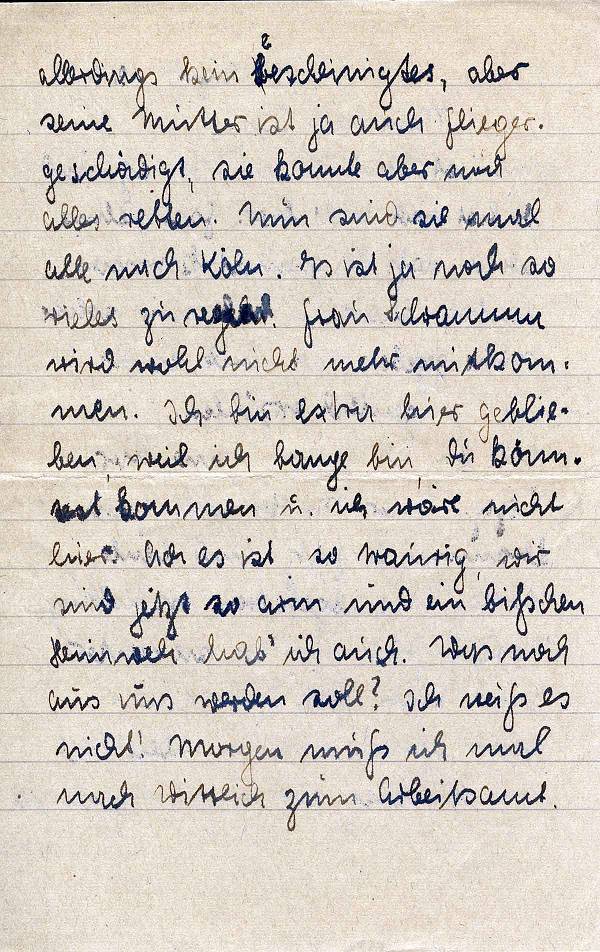 allerdings kein Bescheinigtes, aber
seine Mutter ist ja auch flieger-
geschädigt, sie konnte aber noch
alles retten. Nun sind sie mal
alle nach Köln. Es ist ja noch so
vieles zu regeln. Frau Schramm
wird wohl nicht mehr mitkom-
men. Ich bin extra hier geblie-
ben, weil ich bange bin, Du könn-
test kommen u. ich wäre nicht
hier. Ach es ist so traurig, wir
sind jetzt so arm und ein bißchen
Heimweh hab' ich auch. Was noch
aus uns werden soll? Ich weiß es
nicht! Morgen muß ich mal
nach Wittlich zum Arbeitsamt.